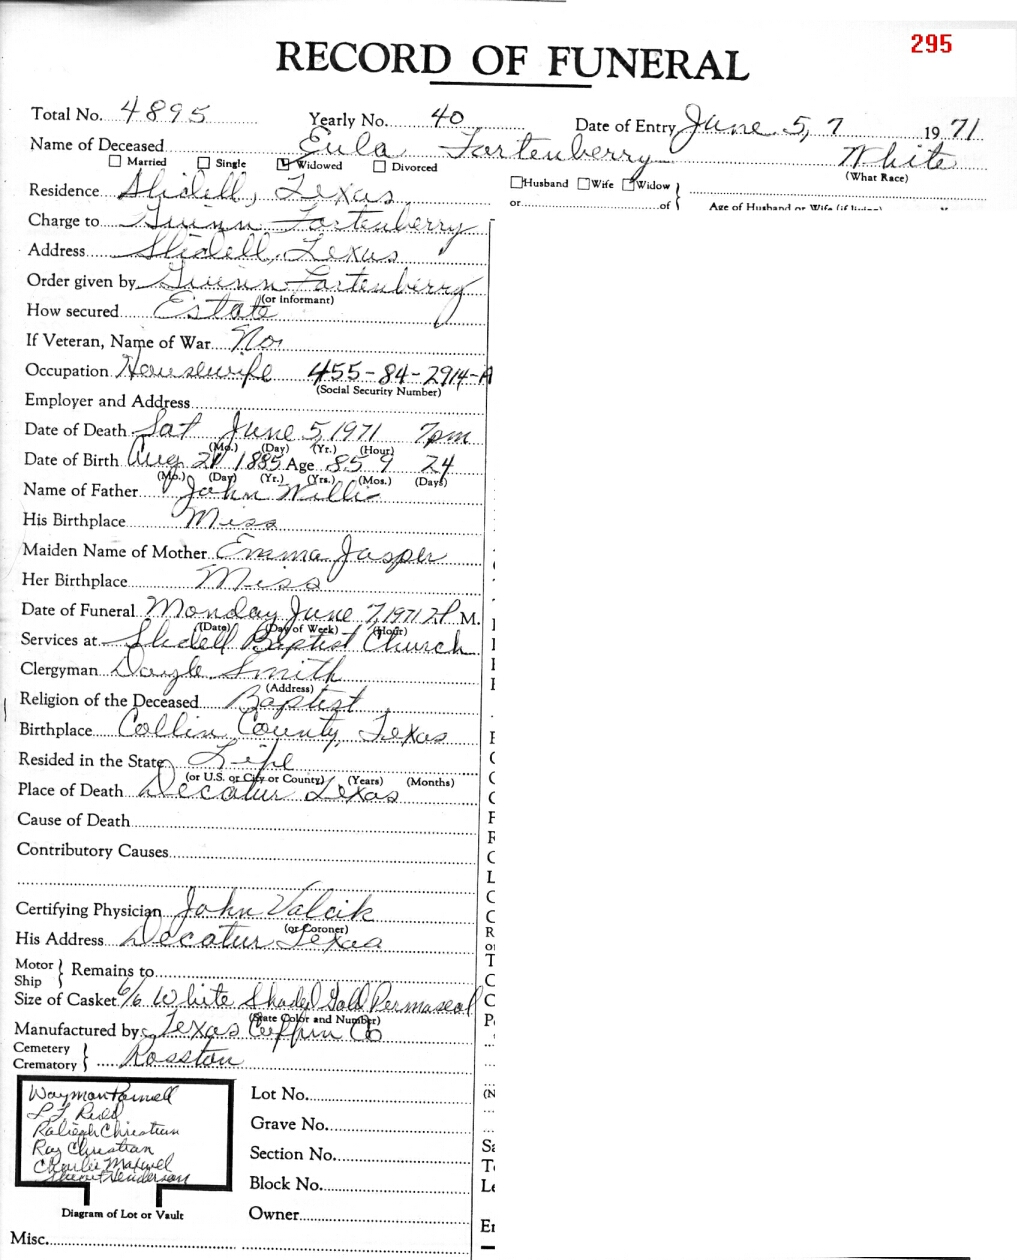 295
RECORD OF FUNERAL
Total No. 4895 Yearly No. 40 Date of Entry June 5, 7 1971
Name of Deceased Eula Fortenberry White
Married Single Widowed Divorced (What Race)
Residence Slidell, Texas Husband Wife Widow
or of Age of Husband or Wife (if living)
Charge to Guinn Fortenberry
Address Slidell, Texas
Order given by Guinn Fortenberry
(or informant)
How secured Estate
If Veteran, Name of War No
Occupation Housewife 455-84-2914-A
(Social Security Number)
Employer and Address
Date of Death Sat June 5, 1971 7pm
(Mo.) (Day) (Yr.) (Hour)
Date of Birth Aug 21 1885 Age 85 9 24
(Mo.) (Day) (Yr.) (Yrs.) (Mos.) (Days)
Name of Father John Willis
His Birthplace Miss
Maiden Name of Mother Emma Jasper
Her Birthplace Miss
Date of Funeral Monday June 7, 1971 2P M.
(Date) (Day of Week) (Hour)
Services at Slidell Baptist Church
Clergyman Doyle Smith
(Address)
Religion of the Deceased Baptist
Birthplace Collin County, Texas
Resided in the State Life
(or U.S. or City or County) (Years) (Months)
Place of Death Decatur Texas
Cause of Death
Contributory Causes
Certifying Physician John Valcik
(or Coroner)
His Address Decatur Texas
Motor Ship Remains to
Size of Casket 6/6 White Shaded Gold Permaseal
(State Color and Number)
Manufactured by Texas Coffin Co
Cemetery Crematory Rosston
Wayman Parnell
Raleigh Christian
Ray Christian
Charlie Maxwell
Henderson
Lot No.
Grave No.
Section No.
Block No.
Owner
Diagram of Lot or Vault
Misc.